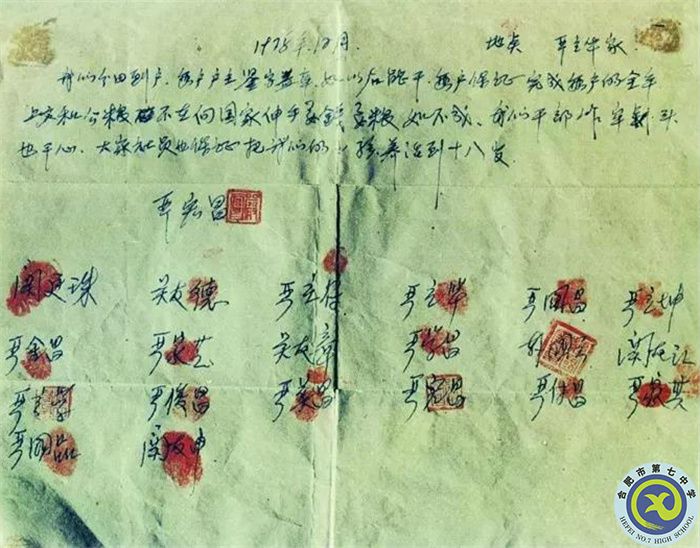 1978年12月 地点 严立华家
我们分田到户,每户户主签字盖章,如以后能干,每户保证完成每户的全年
上交和公粮 不在向国家伸手要钱要粮 如不成,我们干部作牢刹头
也干心,大家社员也保证把我们的小孩养活到十八岁.
严宏昌
关廷珠 关友德 严立符 严立华 严国昌 严立坤
严金昌 严家芝 关友章 严学昌 韩国云 关友江
严立学 严俊昌 严美昌 严宏昌 严付昌 严家其
严国品 关友申
合肥市第七中学
HEFEI NO.7 HIGH SCHOOL